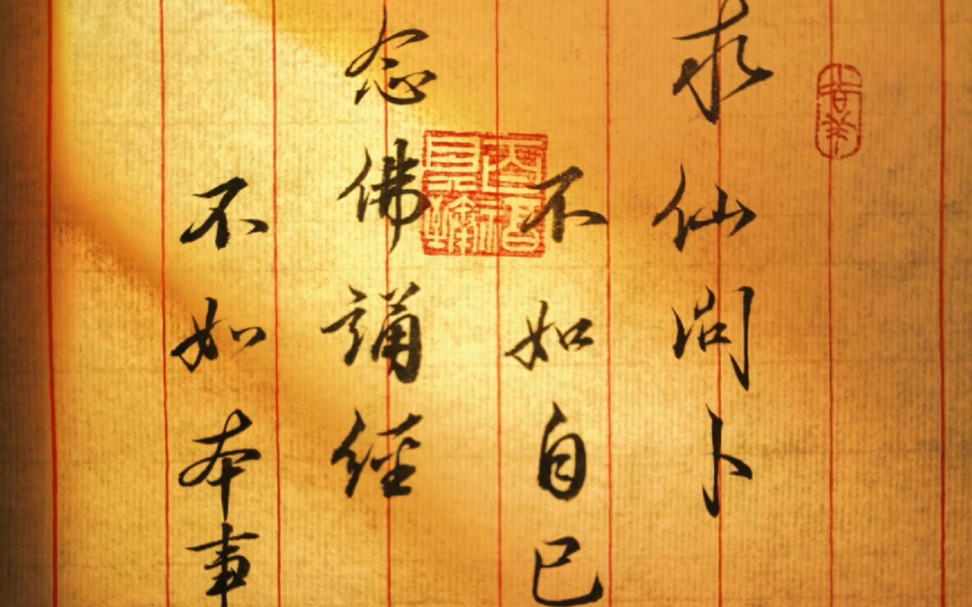 求仙问卜
不如自己
念佛誦經
不如本事